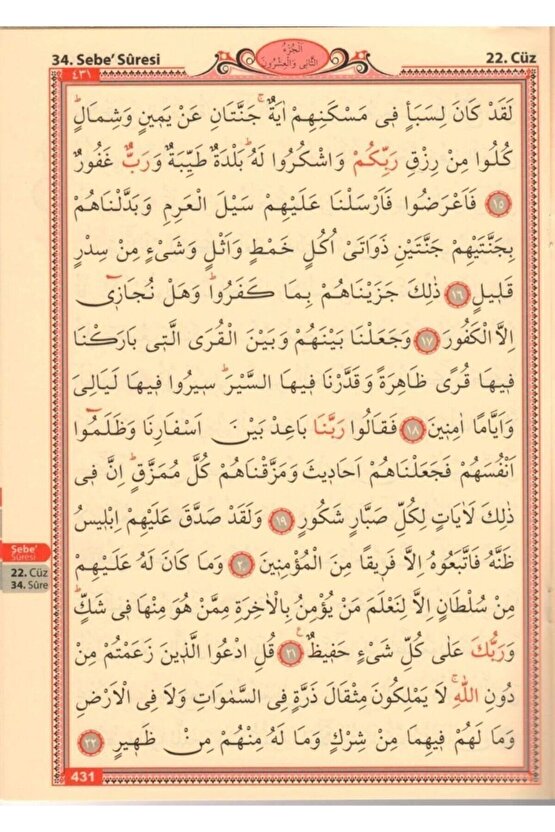 34. Sebe' Sûresi
اَلْجُزْءُ
الثَّانِى وَالْعِشْرُونَ
22. Cüz
٤٣١
لَقَدْ كَانَ لِسَبَأٍ ف۪ى مَسْكَنِهِمْ اٰيَةٌۚ جَنَّتَانِ عَنْ يَم۪ينٍ وَشِمَالٍۜ
كُلُوا مِنْ رِزْقِ رَبِّكُمْ وَاشْكُرُوا لَهُۜ بَلْدَةٌ طَيِّبَةٌ وَرَبٌّ غَفُورٌ
١٥ فَاَعْرَضُوا فَاَرْسَلْنَا عَلَيْهِمْ سَيْلَ الْعَرِمِ وَبَدَّلْنَاهُمْ
بِجَنَّتَيْهِمْ جَنَّتَيْنِ ذَوَاتَىْ اُكُلٍ خَمْطٍ وَاَثْلٍ وَشَىْءٍ مِنْ سِدْرٍ
قَل۪يلٍ ١٦ ذٰلِكَ جَزَيْنَاهُمْ بِمَا كَفَرُواۜ وَهَلْ نُجَاز۪ٓى
اِلَّا الْكَفُورَ ١٧ وَجَعَلْنَا بَيْنَهُمْ وَبَيْنَ الْقُرَى الَّت۪ى بَارَكْنَا
ف۪يهَا قُرًى ظَاهِرَةً وَقَدَّرْنَا ف۪يهَا السَّيْرَۜ س۪يرُوا ف۪يهَا لَيَالِىَ
وَاَيَّامًا اٰمِن۪ينَ ١٨ فَقَالُوا رَبَّنَا بَاعِدْ بَيْنَ اَسْفَارِنَا وَظَلَمُٓوا
اَنْفُسَهُمْ فَجَعَلْنَاهُمْ اَحَاد۪يثَ وَمَزَّقْنَاهُمْ كُلَّ مُمَزَّقٍۜ اِنَّ ف۪ى
ذٰلِكَ لَاٰيَاتٍ لِكُلِّ صَبَّارٍ شَكُورٍ ١٩ وَلَقَدْ صَدَّقَ عَلَيْهِمْ اِبْل۪يسُ
ظَنَّهُ فَاتَّبَعُوهُ اِلَّا فَر۪يقًا مِنَ الْمُؤْمِن۪ينَ ٢٠ وَمَا كَانَ لَهُ عَلَيْهِمْ
مِنْ سُلْطَانٍ اِلَّا لِنَعْلَمَ مَنْ يُؤْمِنُ بِالْاٰخِرَةِ مِمَّنْ هُوَ مِنْهَا ف۪ى شَكٍّۜ
وَرَبُّكَ عَلٰى كُلِّ شَىْءٍ حَف۪يظٌ۟ ٢١ قُلِ ادْعُوا الَّذ۪ينَ زَعَمْتُمْ مِنْ
دُونِ اللّٰهِۚ لَا يَمْلِكُونَ مِثْقَالَ ذَرَّةٍ فِى السَّمٰوَاتِ وَلَا فِى الْاَرْضِ
وَمَا لَهُمْ ف۪يهِمَا مِنْ شِرْكٍ وَمَا لَهُ مِنْهُمْ مِنْ ظَه۪يرٍ ٢٢
431
Sebe'
Sûresi
22. Cüz
34. Sûre